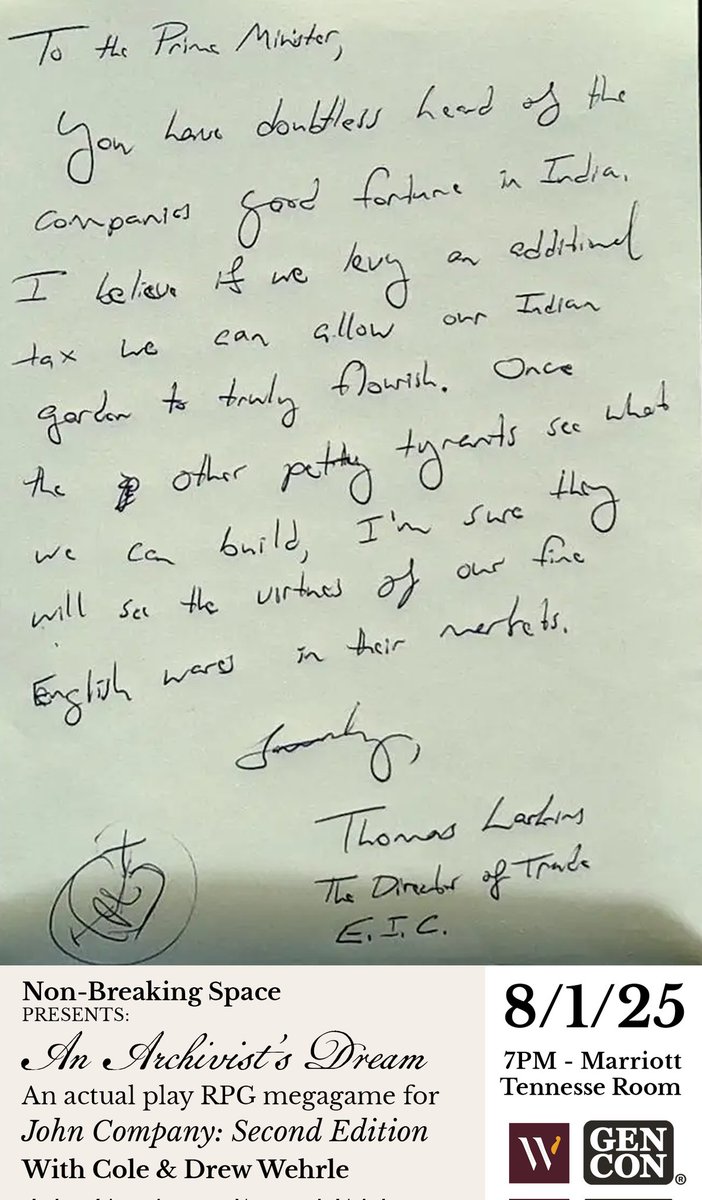 To the Prime Minister,
You have doubtless heard of the
companies good fortune in India.
I believe if we levy an additional
tax we can allow our Indian
garden to truly flourish. Once
the other petty tyrants see what
we can build, I'm sure they
will see the virtues of our fine
English wares in their markets.
Thomas Larkins
The Director of Trade
E.I.C.
Non-Breaking Space
PRESENTS:
An Archivist's Dream
An actual play RPG megagame for
John Company: Second Edition
With Cole & Drew Wehrle
8/1/25
7PM - Marriott
Tennesse Room
W
GEN
CON®